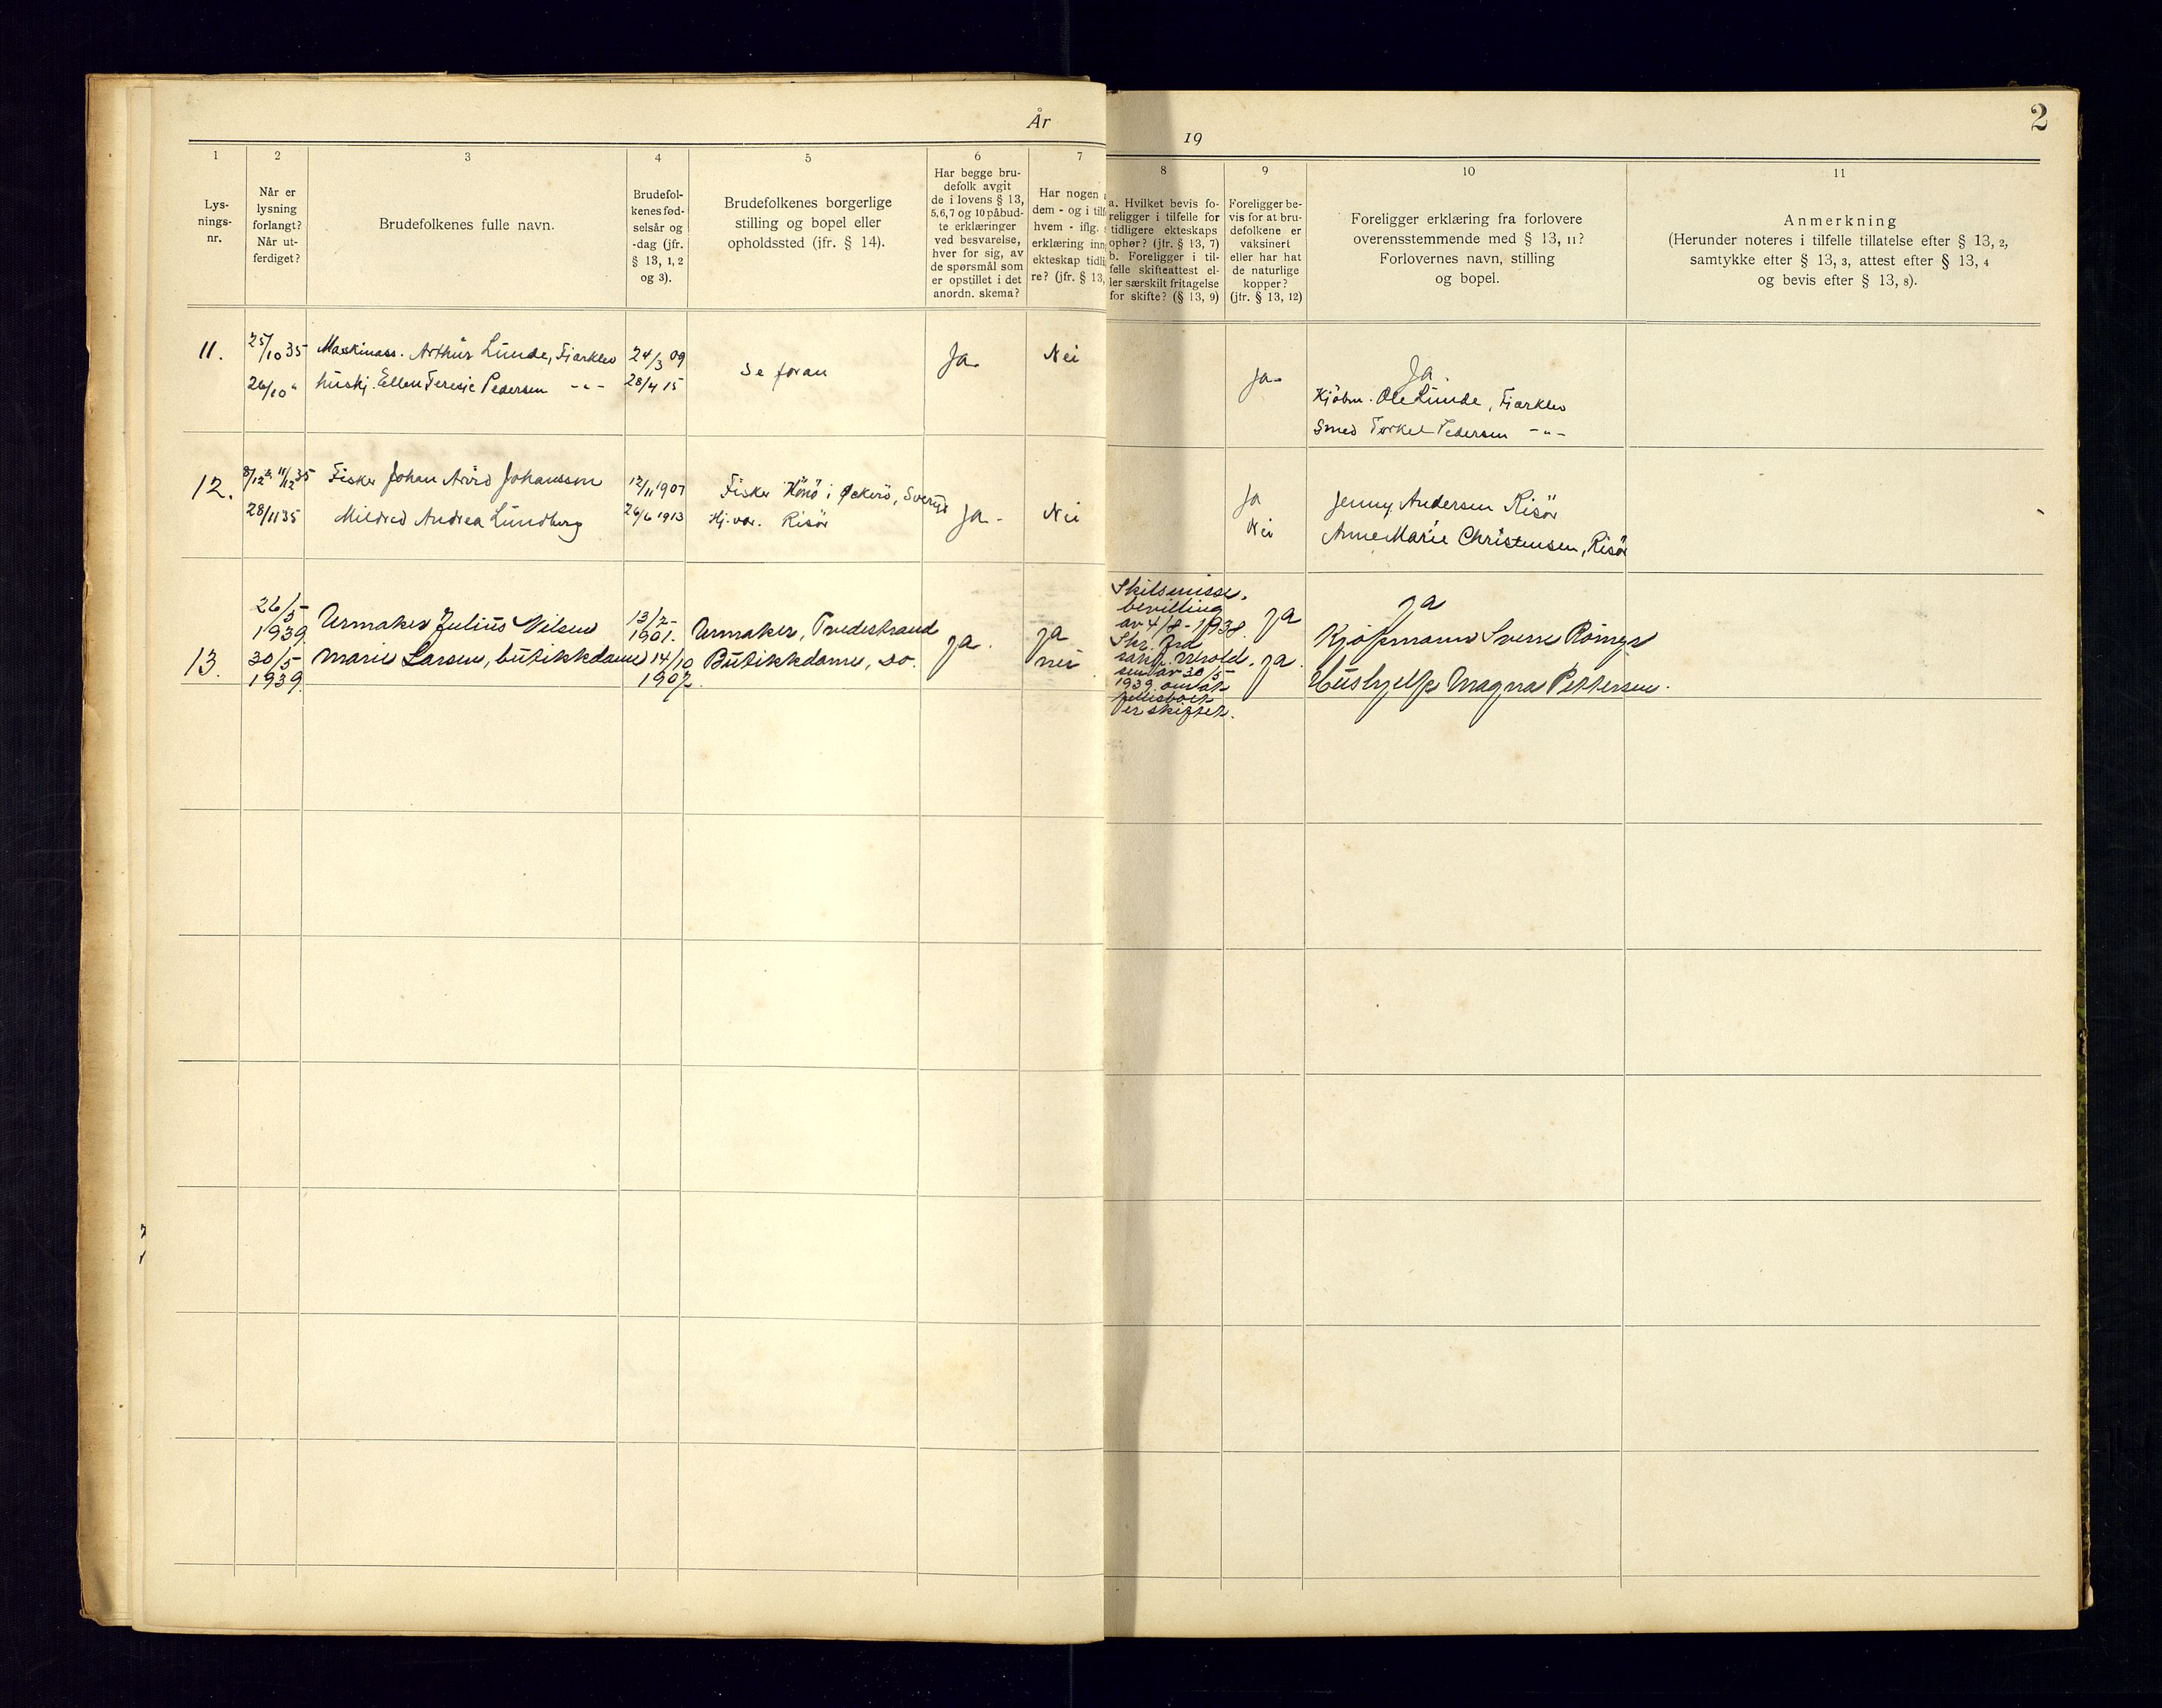 År
19
2
1
Lys-
nings-
nr.
2
Når er
lysning
forlangt?
Når ut-
ferdiget?
3
Brudefolkenes fulle navn.
4
Brudefol-
kenes fød-
selsår og
-dag (jfr.
§ 13, 1, 2
og 3).
5
Brudefolkenes borgerlige
stilling og bopel eller
opholdssted (jfr. § 14).
6
Har begge bru-
defolk avgit
de i lovens § 13,
5, 6, 7 og 10 påbud-
te erklæringer
ved besvarelse,
hver for sig, av
de spørsmål som
er opstillet i det
anordn. skema?
7
Har nogen
dem - og i tilf
hvem - iflg.
erklæring inng
ekteskap tidli
re? (jfr. § 13,
8
a. Hvilket bevis fo-
religger i tilfelle for
tidligere ekteskaps
ophør? (jfr. § 13, 7)
b. Foreligger i til-
felle skifteattest el-
ler særskilt fritagelse
for skifte? (§ 13, 9)
9
Foreligger be-
vis for at bru-
defolkene er
vaksinert
eller har hat
de naturlige
kopper?
(jfr. § 13, 12)
10
Foreligger erklæring fra forlovere
overensstemmende med § 13, 11?
Forlovernes navn, stilling
og bopel.
11
Anmerkning
(Herunder noteres i tilfelle tillatelse efter § 13, 2,
samtykke efter § 13, 3, attest efter § 13, 4
og bevis efter § 13, 8).
11.
25/10 35
26/10 "
Maskinass. Arthur Lunde, Fiarkleo
huskj. Ellen Teresie Pedersen -"-
24/3 09
28/4 15
Se foran
Ja
Nei
Ja
Ja.
Kjøbm. Ole Lunde, Fiarkleo
Smed Torkel Pedersen -"-
12.
28/11 35
Fisker Johan Arvid Johansson
Mildred Andrea Lundberg
12/11 1907
26/6 1913
Fisker Hönö i Øckerö, Sverige
Hj. vær. Risör
Ja -
Nei
Ja
Nei
Jenny Andersen Risör
Anne Marie Christensen, Risör
13.
26/5
1939.
30/5
1939.
Urmaker Julius Nilsen
Marie Larsen, butikkdame
13/2-
1901.
14/10
1907.
Urmaker, Tvedestrand
Butikkdame, do.
ja.
ja
nei.
Skilsmisse-
bevilling
av 4/8-1938.
Skr. fra
sakf.
sen av 30/5-
1939 om at
fellesboet
er skiftet.
ja
ja.
ja
Kjøpmann Sverre Rømyr
Hushjelp Magna Pettersen.